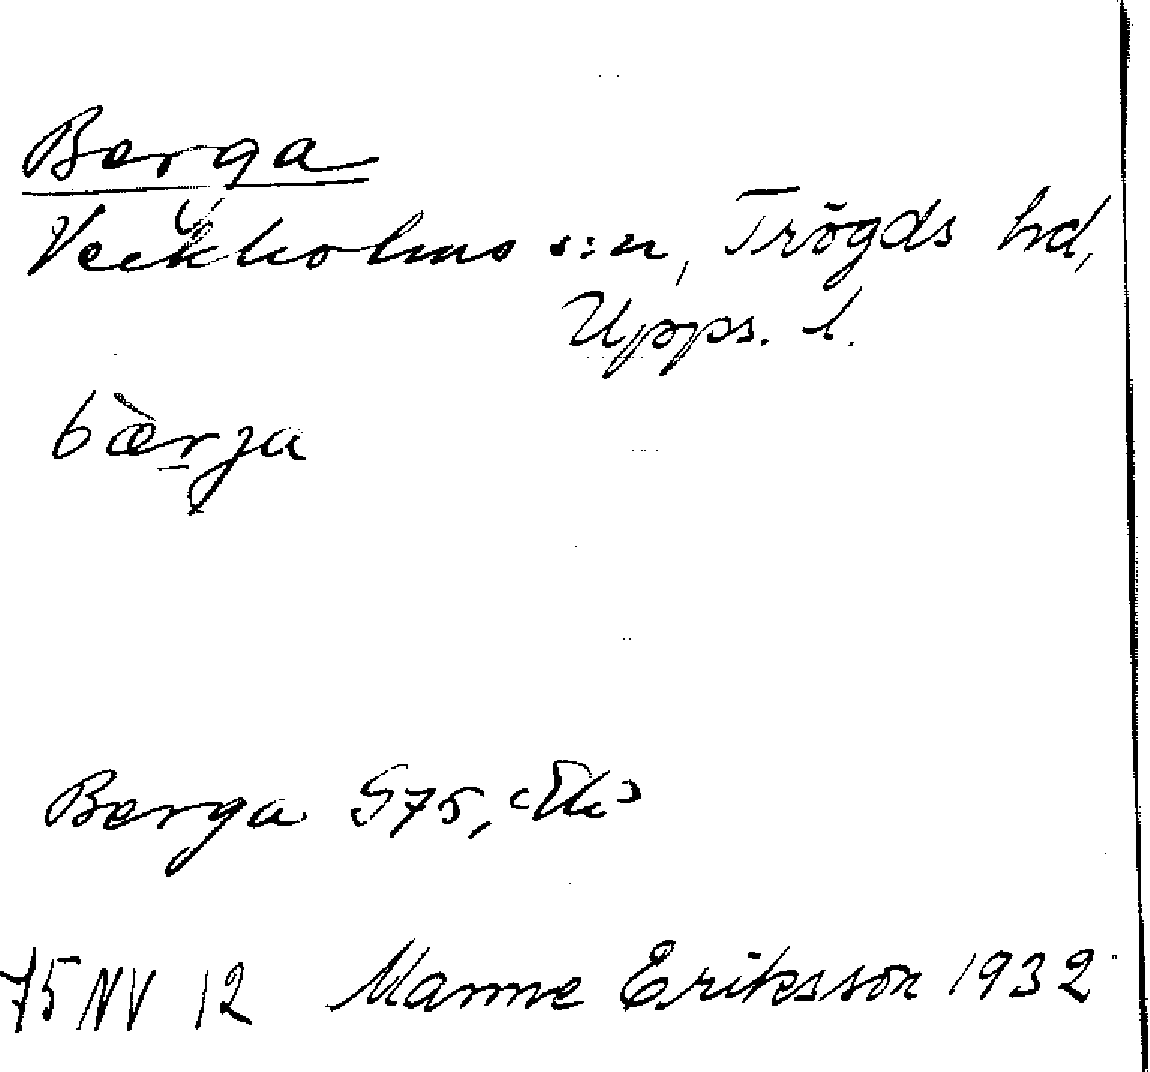 Berga
Veckholms s:n, Trögds hd,
Upps. l.
bæ̀rja
Berga G75, Ek
75 NV 12 Manne Eriksson 1932